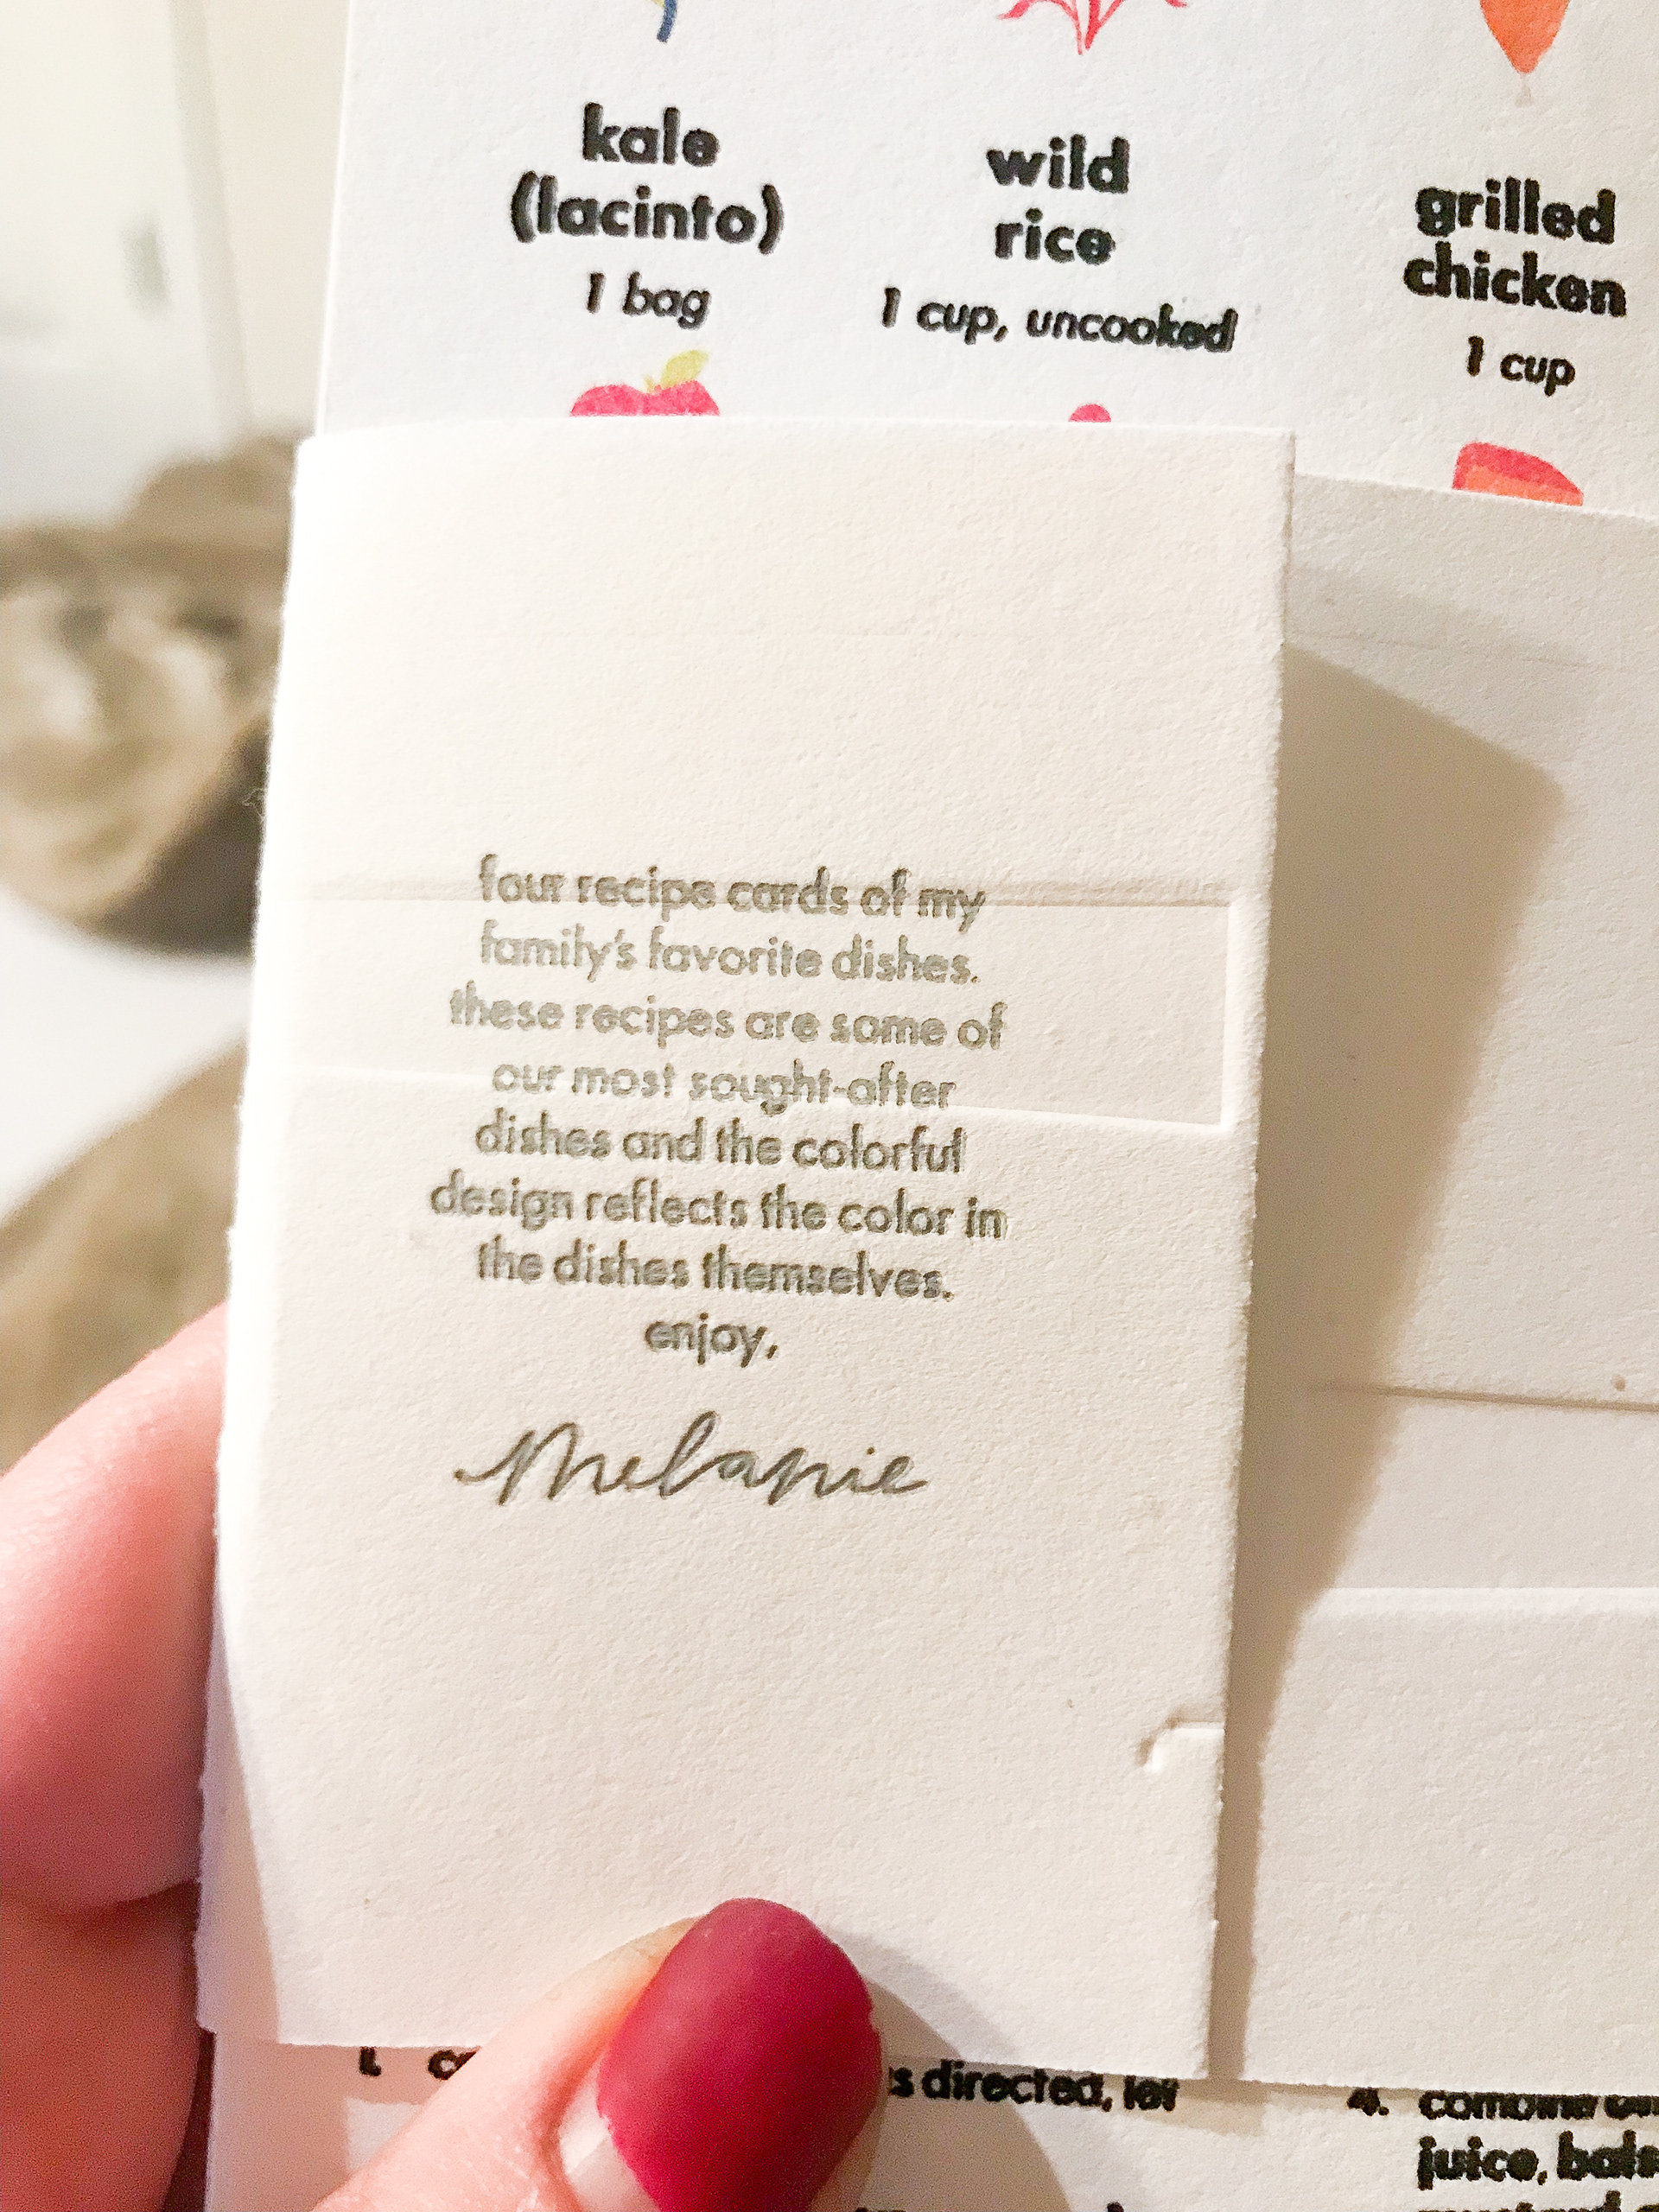 kale
(lacinto)
1 bag
wild
rice
1 cup, uncooked
grilled
chicken
1 cup
four recipe cards of my
family's favorite dishes.
these recipes are some of
our most sought-after
dishes and the colorful
design reflects the color in
the dishes themselves.
enjoy,
Melanie
1.
directed, let
4. combine
juice,